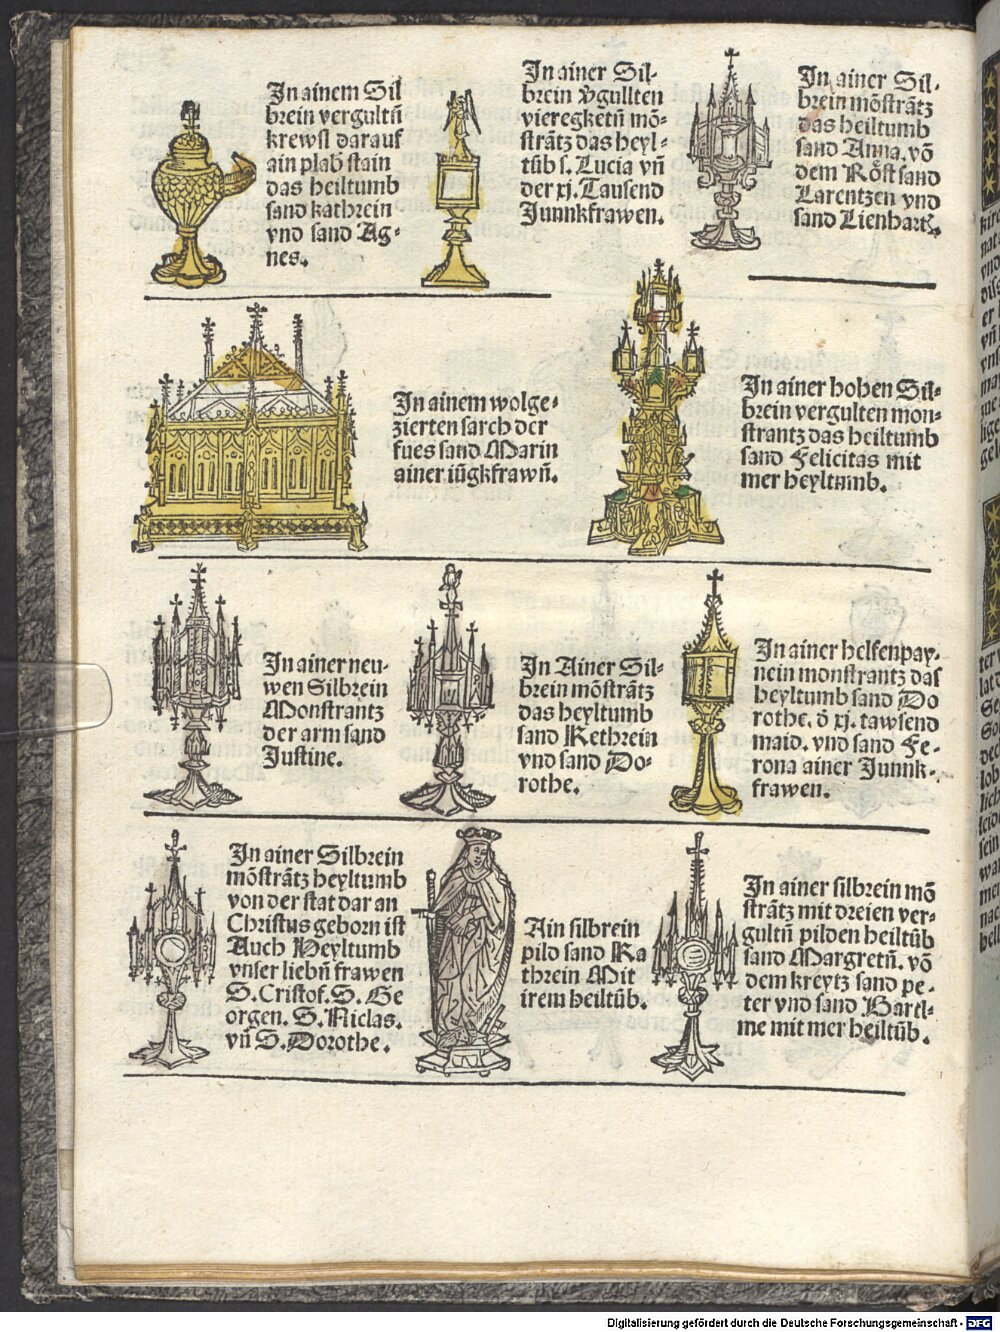 In ainem Sil
brein vergultñ
krewsl darauf
ain plab stain
das heiltumb
sand kathrein
vnd sand Ag⸗
nes.
In ainer Sil⸗
brein v̄gullten
vieregketñ mō⸗
strātz das heyl⸗
tūb s. Lucia vñ
der xj. Tausend
Junnkfrawen.
In ainer Sil⸗
brein mōstrātz
das heiltumb
sand Anna. vō
dem Röst sand
Larentzen vnd
sand Lienhart.
In ainem wolge⸗
zierten sarch der
fues sand Marin
ainer iūgkfrawñ.
In ainer hohen Sil⸗
brein vergulten mon⸗
strantz das heiltumb
sand Felicitas mit
mer heyltumb.
In ainer neu⸗
wen Silbrein
Monstrantz
der arm sand
Justine.
In Ainer Sil⸗
brein mōstrātz
das heyltumb
sand Kethrein
vnd sand Do⸗
rothe.
In ainer helfenpay⸗
nein monstrantz das
heyltumb sand Do
rothe. ō xj. tawsend
maid. vnd sand Fe⸗
rona ainer Junnk⸗
frawen.
In ainer Silbrein
mōstrātz heyltumb
von der stat dar an
Christus geborn ist
Auch Heyltumb
vnser liebñ frawen
S. Cristof. S. Ge
orgen. S. Niclas.
vñ S. Dorothe.
Ain silbrein
pild sand Ka
threin Mit
irem heiltūb.
In ainer silbrein mō
strātz mit dreien ver⸗
gultñ pilden heiltūb
sand Margretñ. vō
dem kreytz sand pe⸗
ter vnd sand Bartl⸗
me mit mer heiltūb.
Digitalisierung gefördert durch die Deutsche Forschungsgemeinschaft - DFG